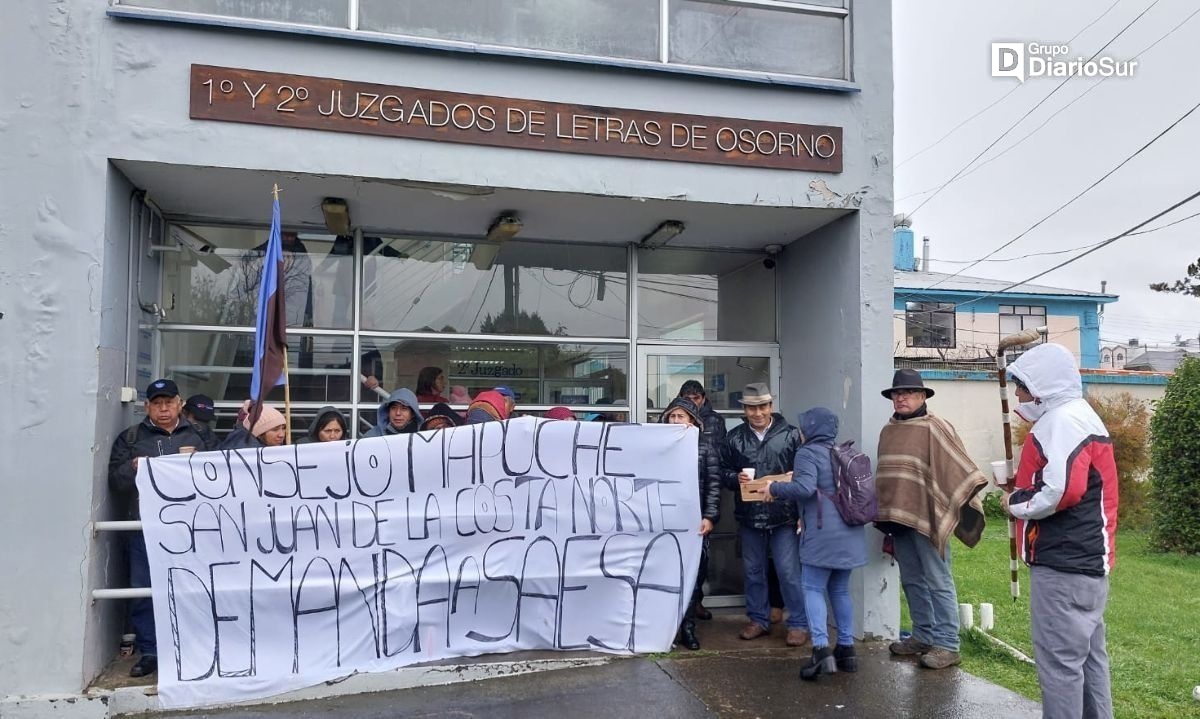 Grupo
DiarioSur
1º Y 2º JUZGADOS DE LETRAS DE OSORNO
2º Juzgado
CONSEJO MAPUCHE
SAN JUAN DE LA COSTA NORTE
DEMANDA A SAESA